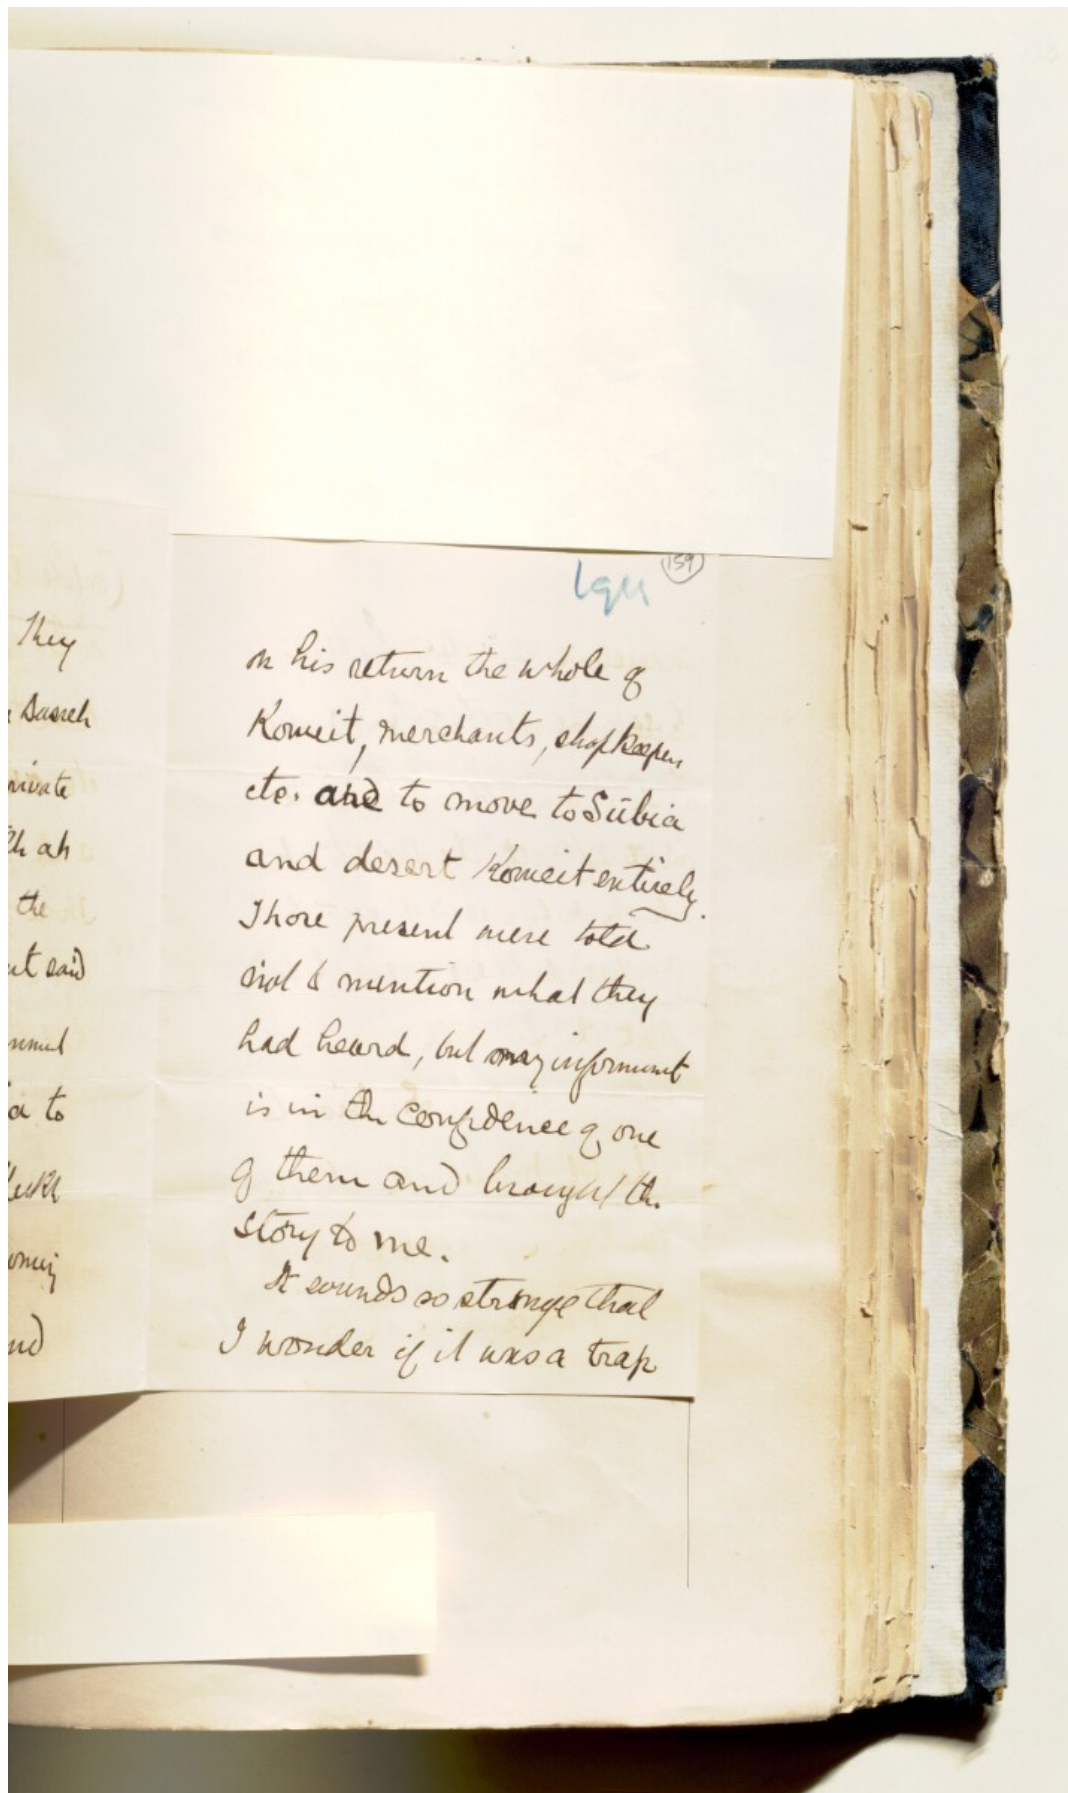 They
Basreh
private
the
said
a to
159
on his return the whole of
Koweit, merchants, shopkeepers
etc. are to move to Sŭbia
and desert Koweit entirely.
Those present were told
not to mention what they
had heard, but my informant
is in the confidence of one
of them and brought the
story to me.
It sounds so strange that
I wonder if it was a trap